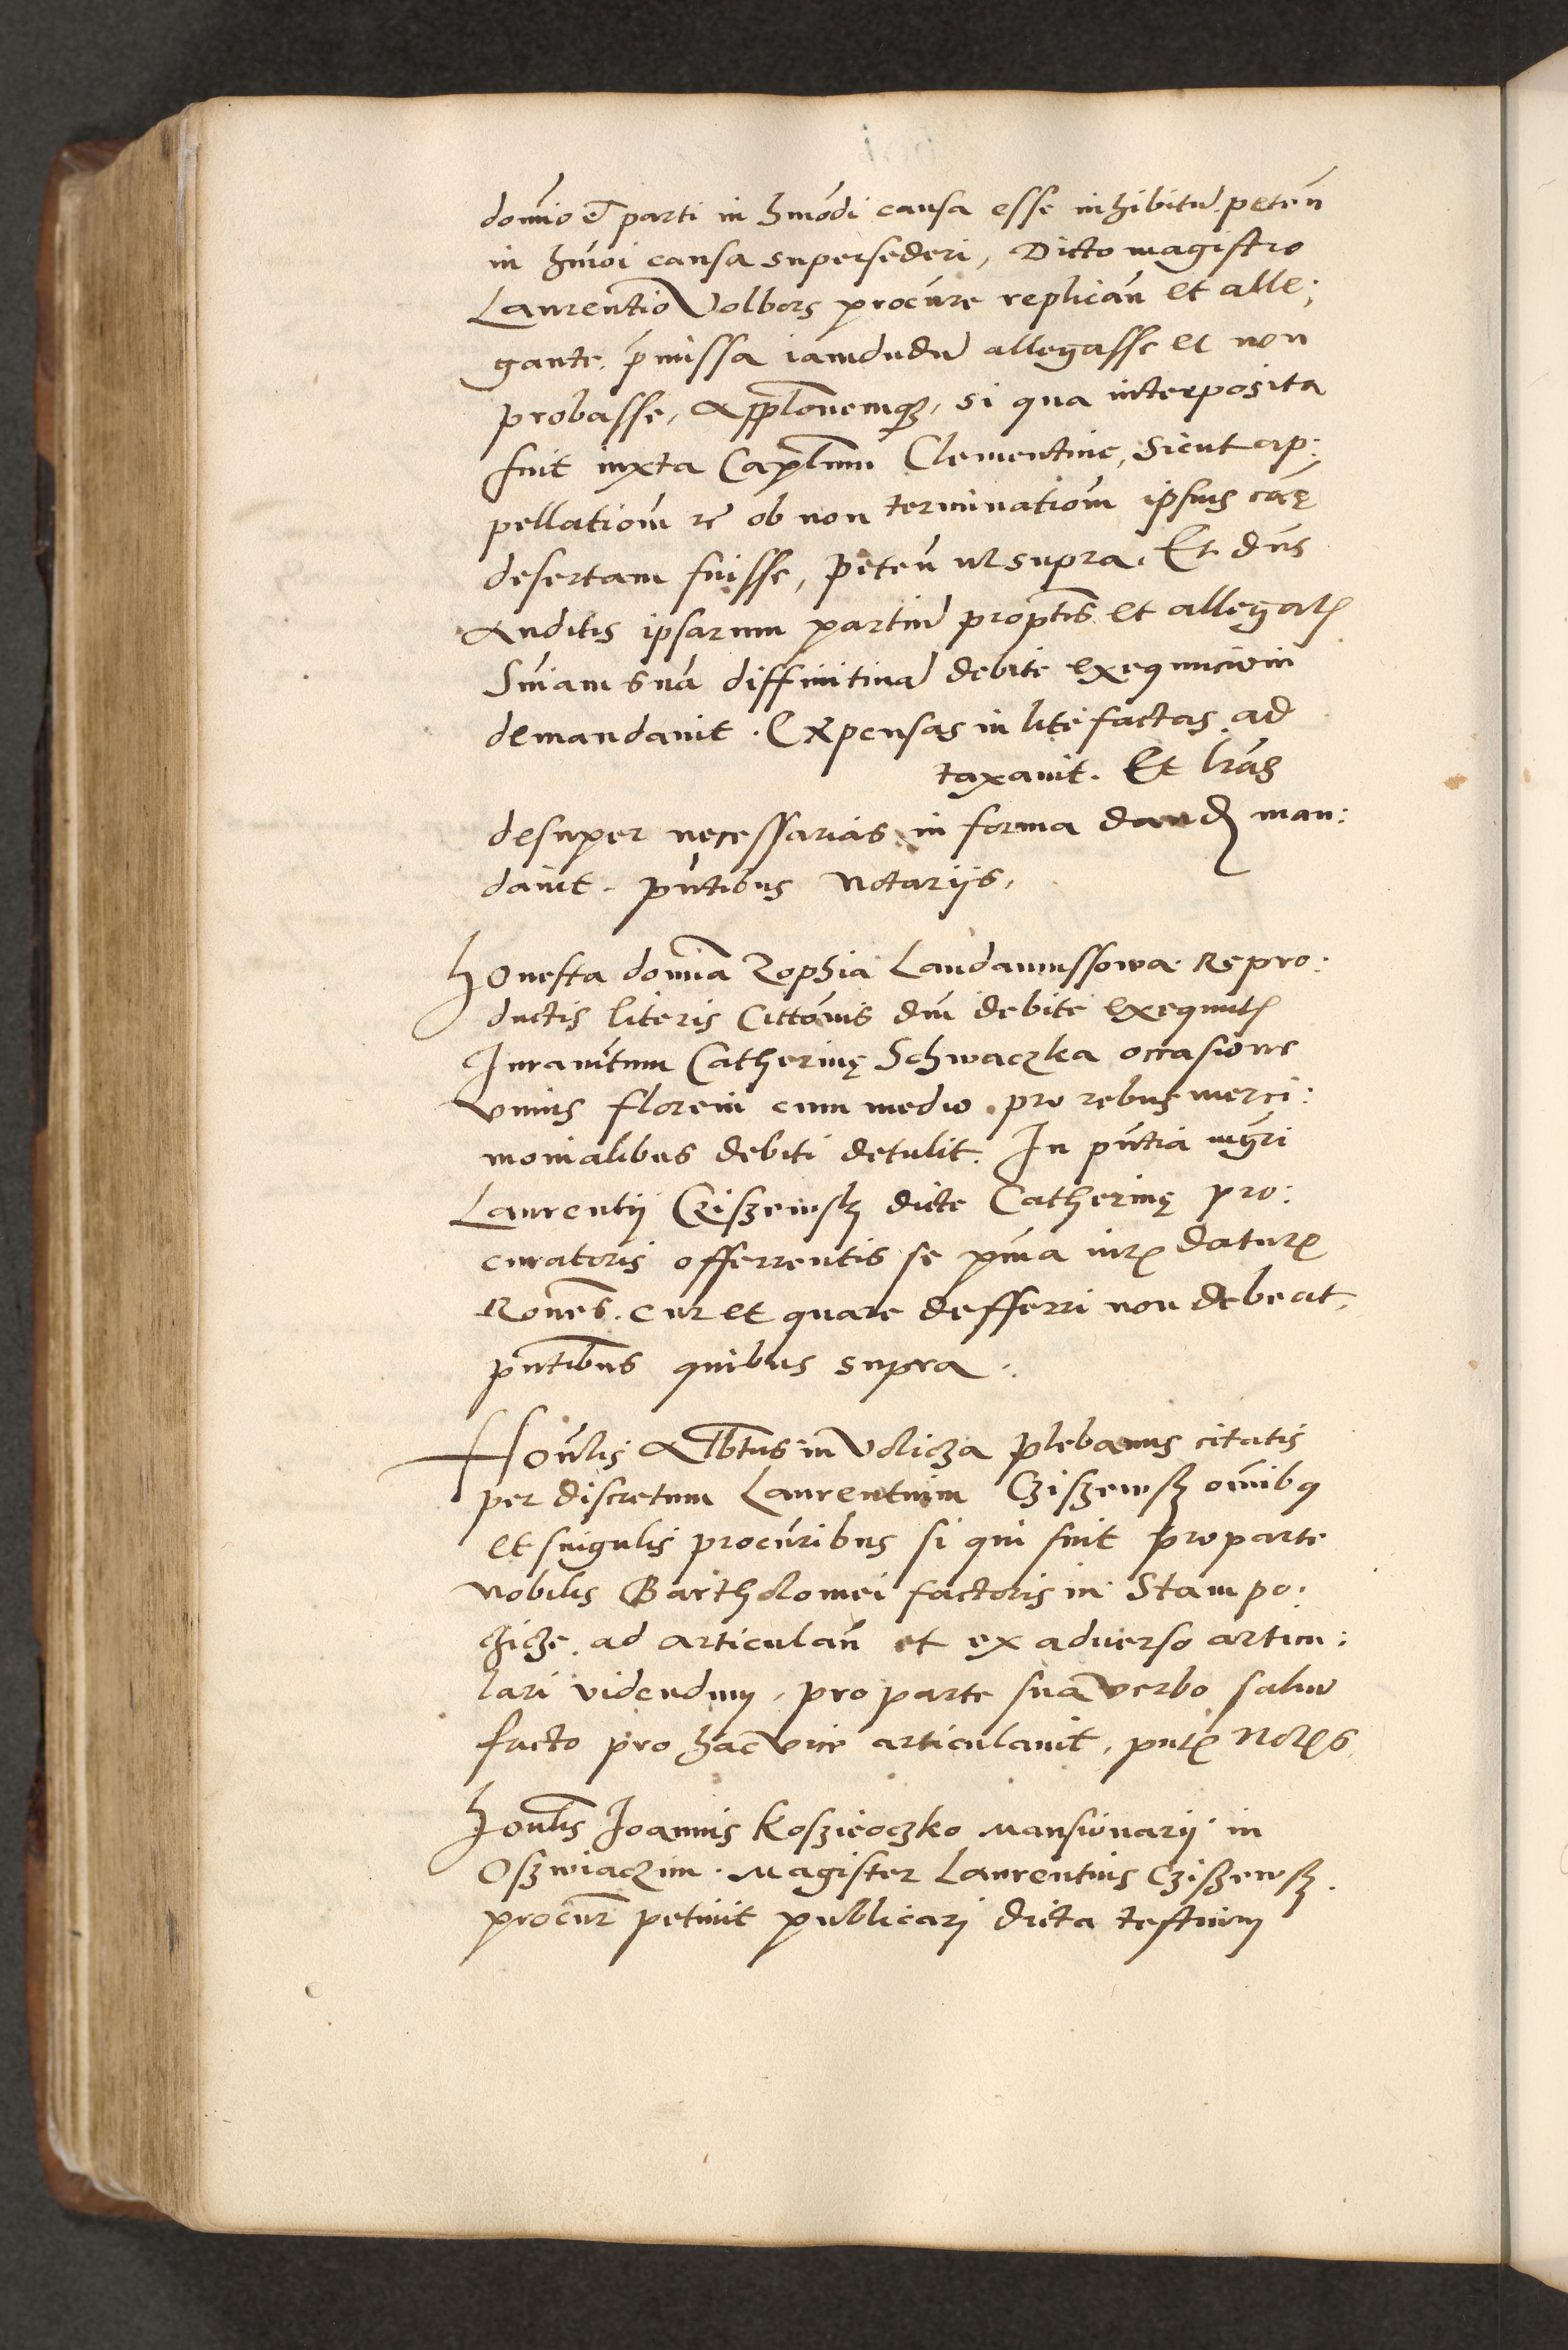 dom̃io et parti in hmõdi causa esse inhibitũ. peteñ
in hmõi causa supersederi, Dicto magistro
Laurentio Volbors procure replicañ et alle:
gante. p̃missa iamdudũ allegasse et non
probasse, Applõnemq3, si qua interposita
fuit iuxta Caplm̃ Clementine, Sicut ap:
pellationẽ re ob non terminationẽ ipsius cãę
desertam fuisse, peteñ ut supra. Et dñs
Auditis ipsarum partiũ propt̃is et allegatis
Sniam suã diffinitiuã debite exequucioni
demandauit. Expensas in lite factas ad
taxauit. Et lras̃
desuper necessarias in forma dand man:
dauit. pñtibus notarijs,
Honesta domĩa Zophia Landamussowa Repro:
ductis literis Citt̃onis dñi debite exequutis
Iuramtum Catherinę Schwaczka occasione
vnius floreni cum medio pro rebus merci:
monialibus debiti detulit. In pñtia mgri
Laurentij Cziszewsky dicte Catherinę pro:
curatoris offerrentis se p̃ma iuris daturum
Rones̃. cur et quare defferri non debeat,
pñtibus quibus supra.
Hoñlis Albtus in Voliza plebanus citatis
per discretum Laurentium Cziszewsky oĩnibq
et singulis procuribus si qui sint pro parte
nobilis Bartholomei factoris in Stampo:
czicze. ad articulañ et ex aduerso articu:
lari videndum, pro parte sua verbo saluo
facto pro hac vice articulauit, pñtis notis
Hoñlis Joannis Koszieoczko mansionarij in
Oszwiaczim. Magister Laurentius Cziszewsky
procur̃ petiuit publicarj dicta testium